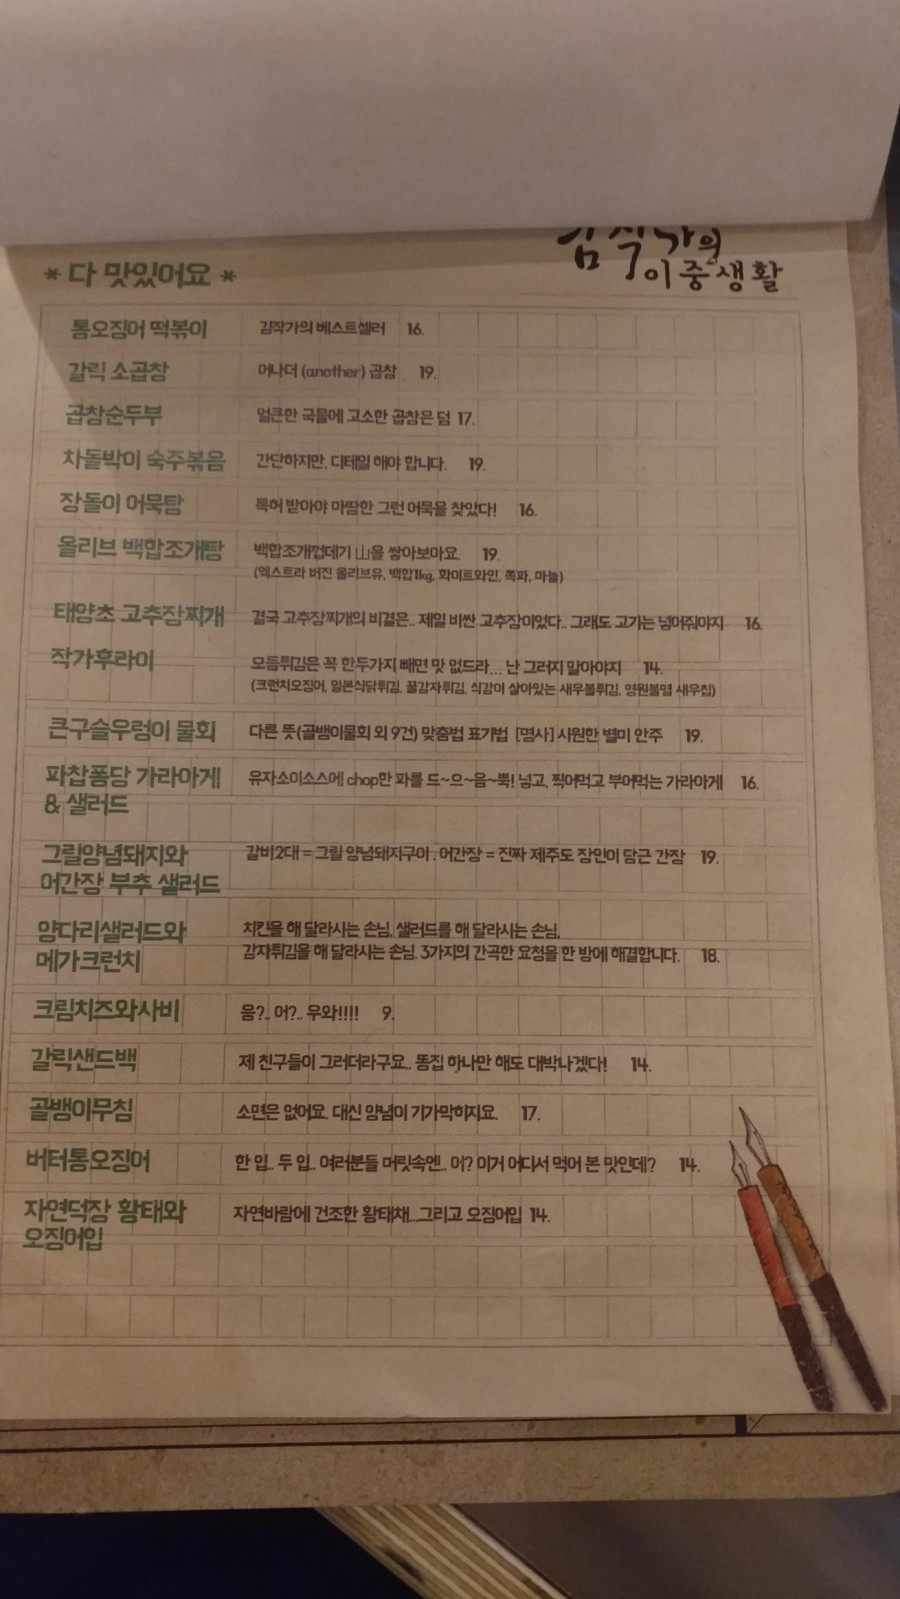 김작가의
이중생활
* 다 맛있어요 *
통오징어 떡볶이 김작가의 베스트셀러 16.
갈릭 소곱창 어나더 (another) 곱창 19.
곱창순두부 얼큰한 국물에 고소한 곱창은 덤 17.
차돌박이 숙주볶음 간단하지만, 디테일 해야 합니다. 19.
장돌이 어묵탕 특허 받아야 마땅한 그런 어묵을 찾았다! 16.
올리브 백합조개탕 백합조개껍데기 山을 쌓아보아요. 19.
(엑스트라 버진 올리브유, 백합1kg, 화이트와인, 쪽파, 마늘)
태양초 고추장찌개 결국 고추장찌개의 비결은.. 제일 비싼 고추장이었다.. 그래도 고기는 넣어줘야지 16.
작가후라이 모듬튀김은 꼭 한두가지 빼면 맛 없드라... 난 그러지 말아야지 14.
(크런치오징어, 일본식닭튀김, 꿀감자튀김, 식감이 살아있는 새우볼튀김, 영원불멸 새우칩)
큰구슬우렁이 물회 다른 뜻(골뱅이물회 외 9건) 맞춤법 표기법 [명사] 시원한 별미 안주 19.
파찹퐁당 가라아게 유자소이소스에 chop한 파를 드~으~음~뿍! 넣고, 찍어먹고 부어먹는 가라아게 16.
& 샐러드
그릴양념돼지와 갈비2대 = 그릴 양념돼지구이, 어간장 = 진짜 제주도 장인이 담근 간장 19.
어간장 부추 샐러드
양다리샐러드와 치킨을 해 달라시는 손님, 샐러드를 해 달라시는 손님,
메가크런치 감자튀김을 해 달라시는 손님. 3가지의 간곡한 요청을 한 방에 해결합니다. 18.
크림치즈와사비 음?.. 어?.. 우와!!!! 9.
갈릭샌드백 제 친구들이 그러더라구요.. 똥집 하나만 해도 대박나겠다! 14.
골뱅이무침 소면은 없어요. 대신 양념이 기가막히지요. 17.
버터통오징어 한 입.. 두 입.. 여러분들 머릿속엔.. 어? 이거 어디서 먹어 본 맛인데? 14.
자연덕장 황태와 자연바람에 건조한 황태채...그리고 오징어입 14.
오징어입